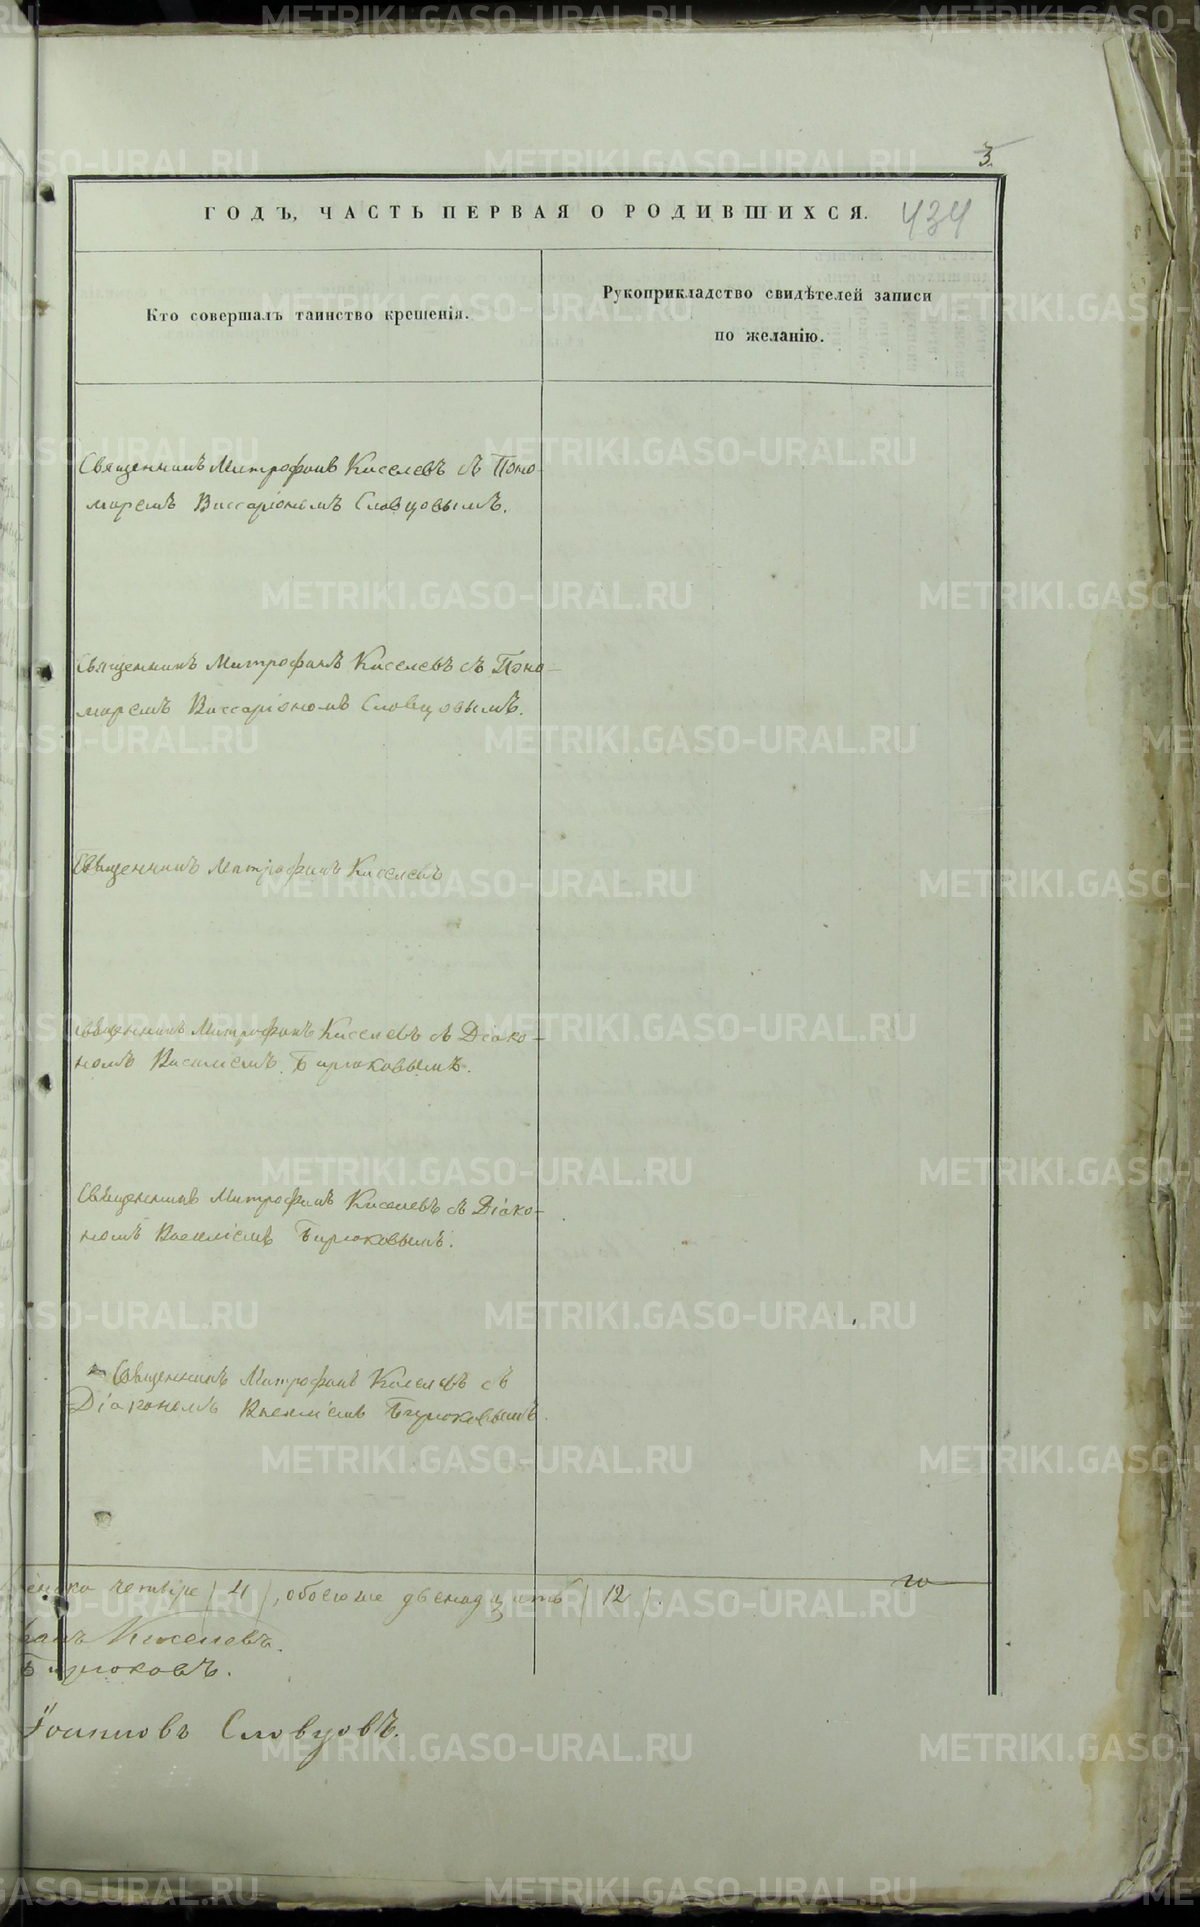 3.
ГОДЪ, ЧАСТЬ ПЕРВАЯ О РОДИВШИХСЯ.
434
Кто совершалъ таинство крещенія.
Рукоприкладство свидѣтелей записи
по желанію.
Священникъ Митрофанъ Киселевъ съ Поно-
маремъ Виссаріономъ Словцовымъ.
Священникъ Митрофанъ Киселевъ съ Поно-
маремъ Виссаріономъ Словцовымъ.
Священникъ Митрофанъ Киселевъ
Священникъ Митрофанъ Киселевъ съ Діако-
номъ Василіемъ Бирюковымъ.
Священникъ Митрофанъ Киселевъ съ Діако-
номъ Василіемъ Бирюковымъ.
Священникъ Митрофанъ Киселевъ съ
Діакономъ Василіемъ Бирюковымъ.
четыре (4), обоего двенадцать (12).
Киселевъ.
Бирюковъ.
Словцовъ.
METRIKI.GASO-URAL.RU